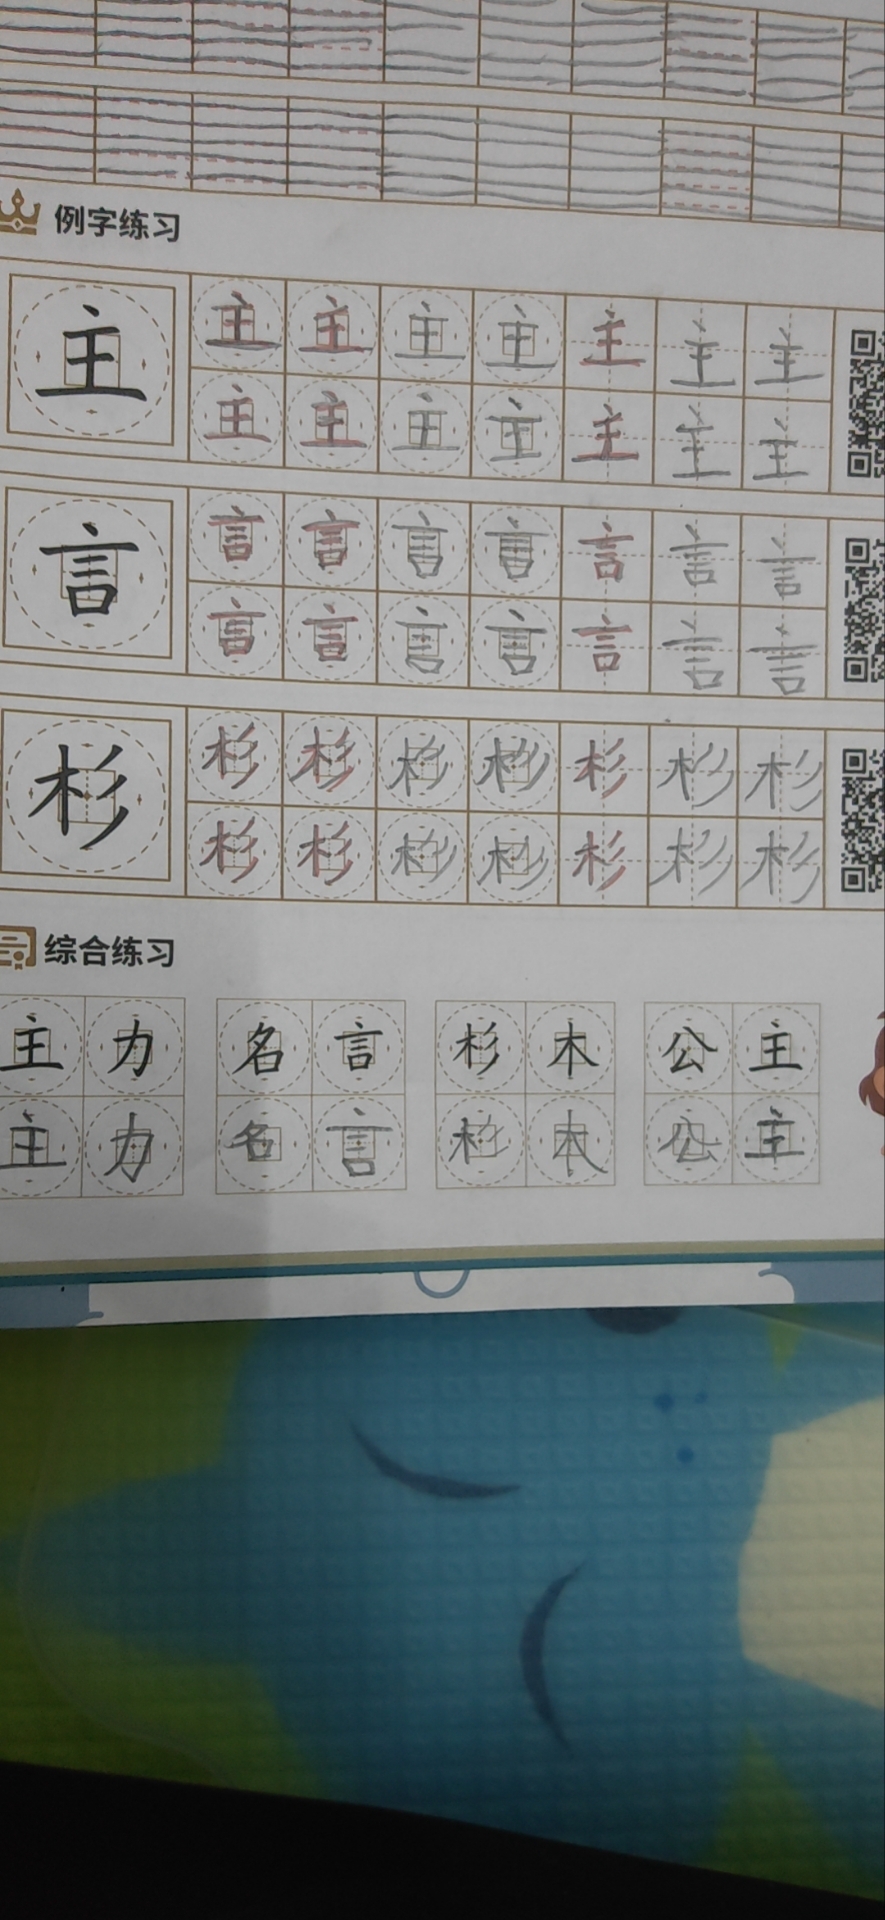 例字练习
主 主 主 主 主 主 主 主
主 主 主 主 主 主 主
言 言 言 言 言 言 言 言
言 言 言 言 言 言 言
杉 杉 杉 杉 杉 杉 杉 杉
杉 杉 杉 杉 杉 杉 杉
综合练习
主力 名言 杉木 公主
主力 名言 杉木 公主